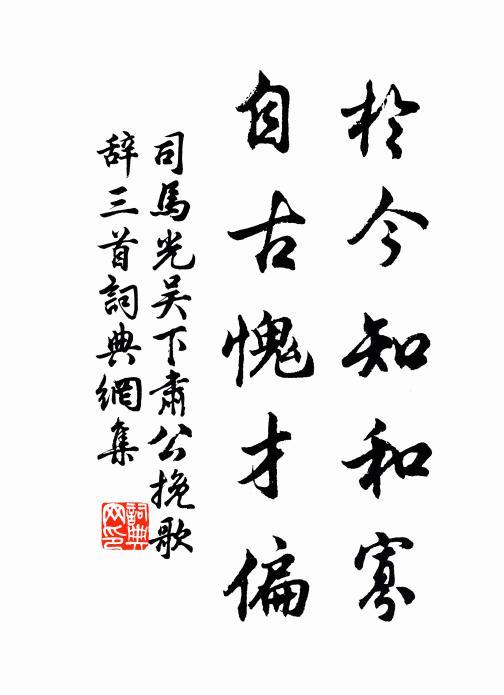 於今知和寡
自古愧才偏
司馬光吴下肅公挽歌
辞三首詞典網集
詞典
网印